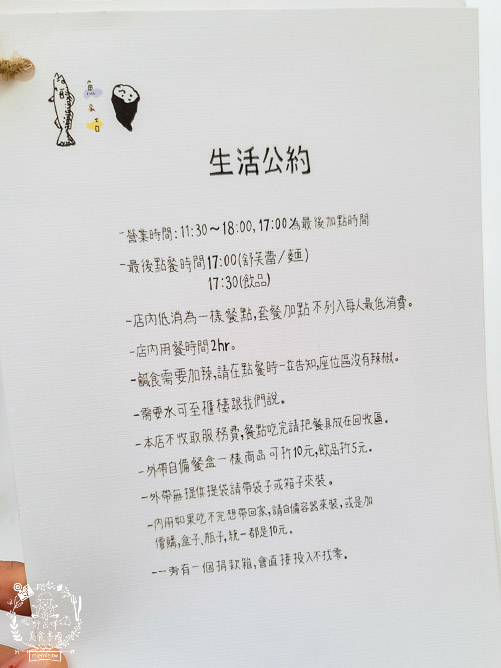 魚
&
吉
生活公約
-營業時間:11:30~18:00,17:00為最後加點時間
-最後點餐時間17:00(舒芙蕾/麵)
17:30(飲品)
-店內低消為一樣餐點,套餐加點不列入每人最低消費。
-店內用餐時間2hr。
-鹹食需要加辣,請在點餐時一並告知,座位區沒有辣椒。
-需要水可至櫃檯跟我們說。
-本店不收取服務費,餐點吃完請把餐具放在回收區。
-外帶自備餐盒一樣商品可折10元,飲品折5元。
-外帶無提供提袋請帶袋子或箱子來裝。
-內用如果吃不完想帶回家,請自備容器來裝,或是加
價購,盒子、瓶子,統一都是10元。
-一旁有一個捐款箱,會直接投入不找零。
美食